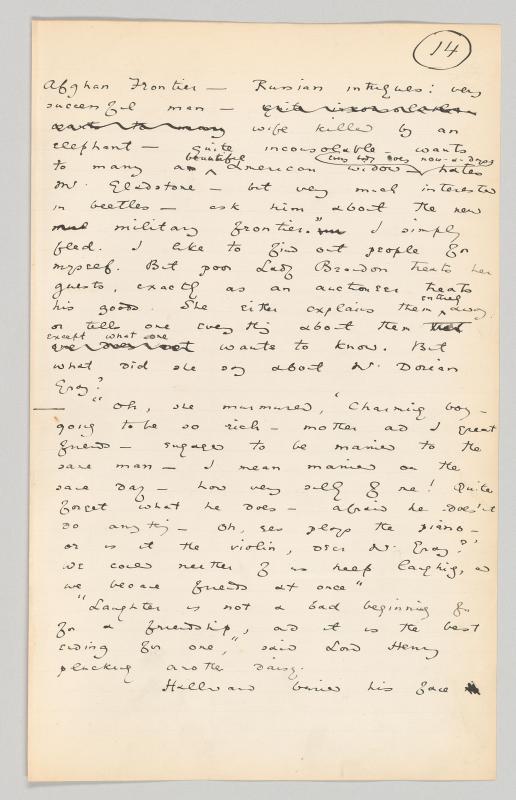 14
Afghan Frontier — Russian intrigues: very
successful man —
wife killed by an
elephant — quite inconsolable — wants
to marry a beautiful American widow — everybody does now-a-days — hates
Mr. Gladstone — but very much interested
in beetles — ask him about the new
military frontier." I simply
fled. I like to find out people for
myself. But poor Lady Brandon treats her
guests, exactly as an auctioneer treats
his goods. She either explains them entirely away
or tells one everything about them
except what one wants to know. But
what did she say about Mr. Dorian
Gray?
"Oh, she murmured, "Charming boy —
going to be so rich — mother and I great
friends — engaged to be married to the
same man — I mean married on the
same day — how very silly of me! Quite
forget what he does — afraid he doesn't
do anything — Oh, yes plays the piano —
or is it the violin, dear Mr. Gray?"
We could neither of us keep laughing, and
we became friends at once"
"Laughter is not a bad beginning for
for a friendship, and it is the best
ending for one," said Lord Henry
plucking another daisy.
Hallward buried his face